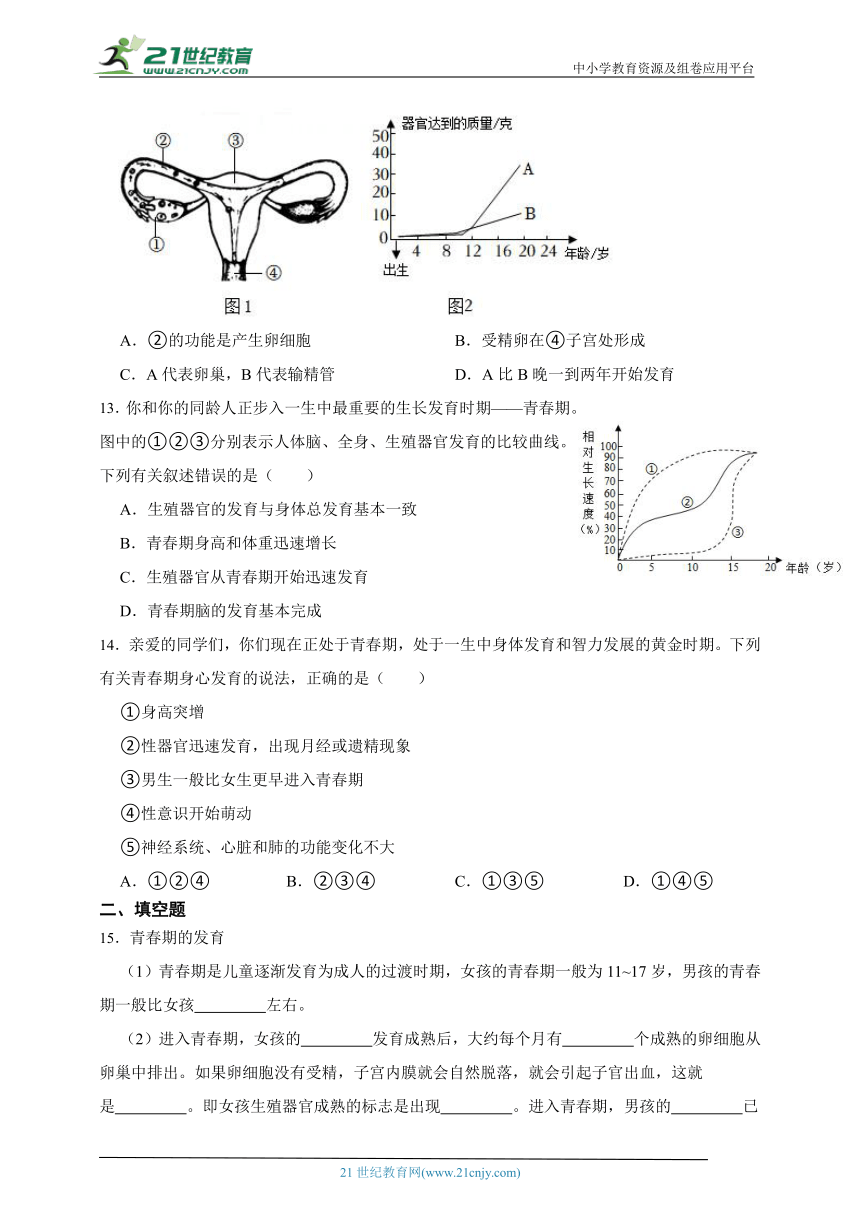 21世纪教育
WWW.21CNJY.COM
中小学教育资源及组卷应用平台
② ③ ① ④
图1
器官达到的质量/克
50
40
30
20
10
0
A
B
4 8 12 16 20 24 年龄/岁
出生
图2
A.②的功能是产生卵细胞 B.受精卵在④子宫处形成
C.A代表卵巢,B代表输精管 D.A比B晚一到两年开始发育
13.你和你的同龄人正步入一生中最重要的生长发育时期——青春期。
图中的①②③分别表示人体脑、全身、生殖器官发育的比较曲线。
下列有关叙述错误的是( )
A.生殖器官的发育与身体总发育基本一致
B.青春期身高和体重迅速增长
C.生殖器官从青春期开始迅速发育
D.青春期脑的发育基本完成
相对生长速度(%)
100
90
80
70
60
50
40
30
20
10
① ② ③
0 5 10 15 20 年龄(岁)
14.亲爱的同学们,你们现在正处于青春期,处于一生中身体发育和智力发展的黄金时期。下列
有关青春期身心发育的说法,正确的是( )
①身高突增
②性器官迅速发育,出现月经或遗精现象
③男生一般比女生更早进入青春期
④性意识开始萌动
⑤神经系统、心脏和肺的功能变化不大
A.①②④ B.②③④ C.①③⑤ D.①④⑤
二、填空题
15.青春期的发育
(1)青春期是儿童逐渐发育为成人的过渡时期,女孩的青春期一般为11~17岁,男孩的青春
期一般比女孩________左右。
(2)进入青春期,女孩的________发育成熟后,大约每个月有________个成熟的卵细胞从
卵巢中排出。如果卵细胞没有受精,子宫内膜就会自然脱落,就会引起子官出血,这就
是________。即女孩生殖器官成熟的标志是出现________。进入青春期,男孩的________已
21世纪教育网(www.21cnjy.com)